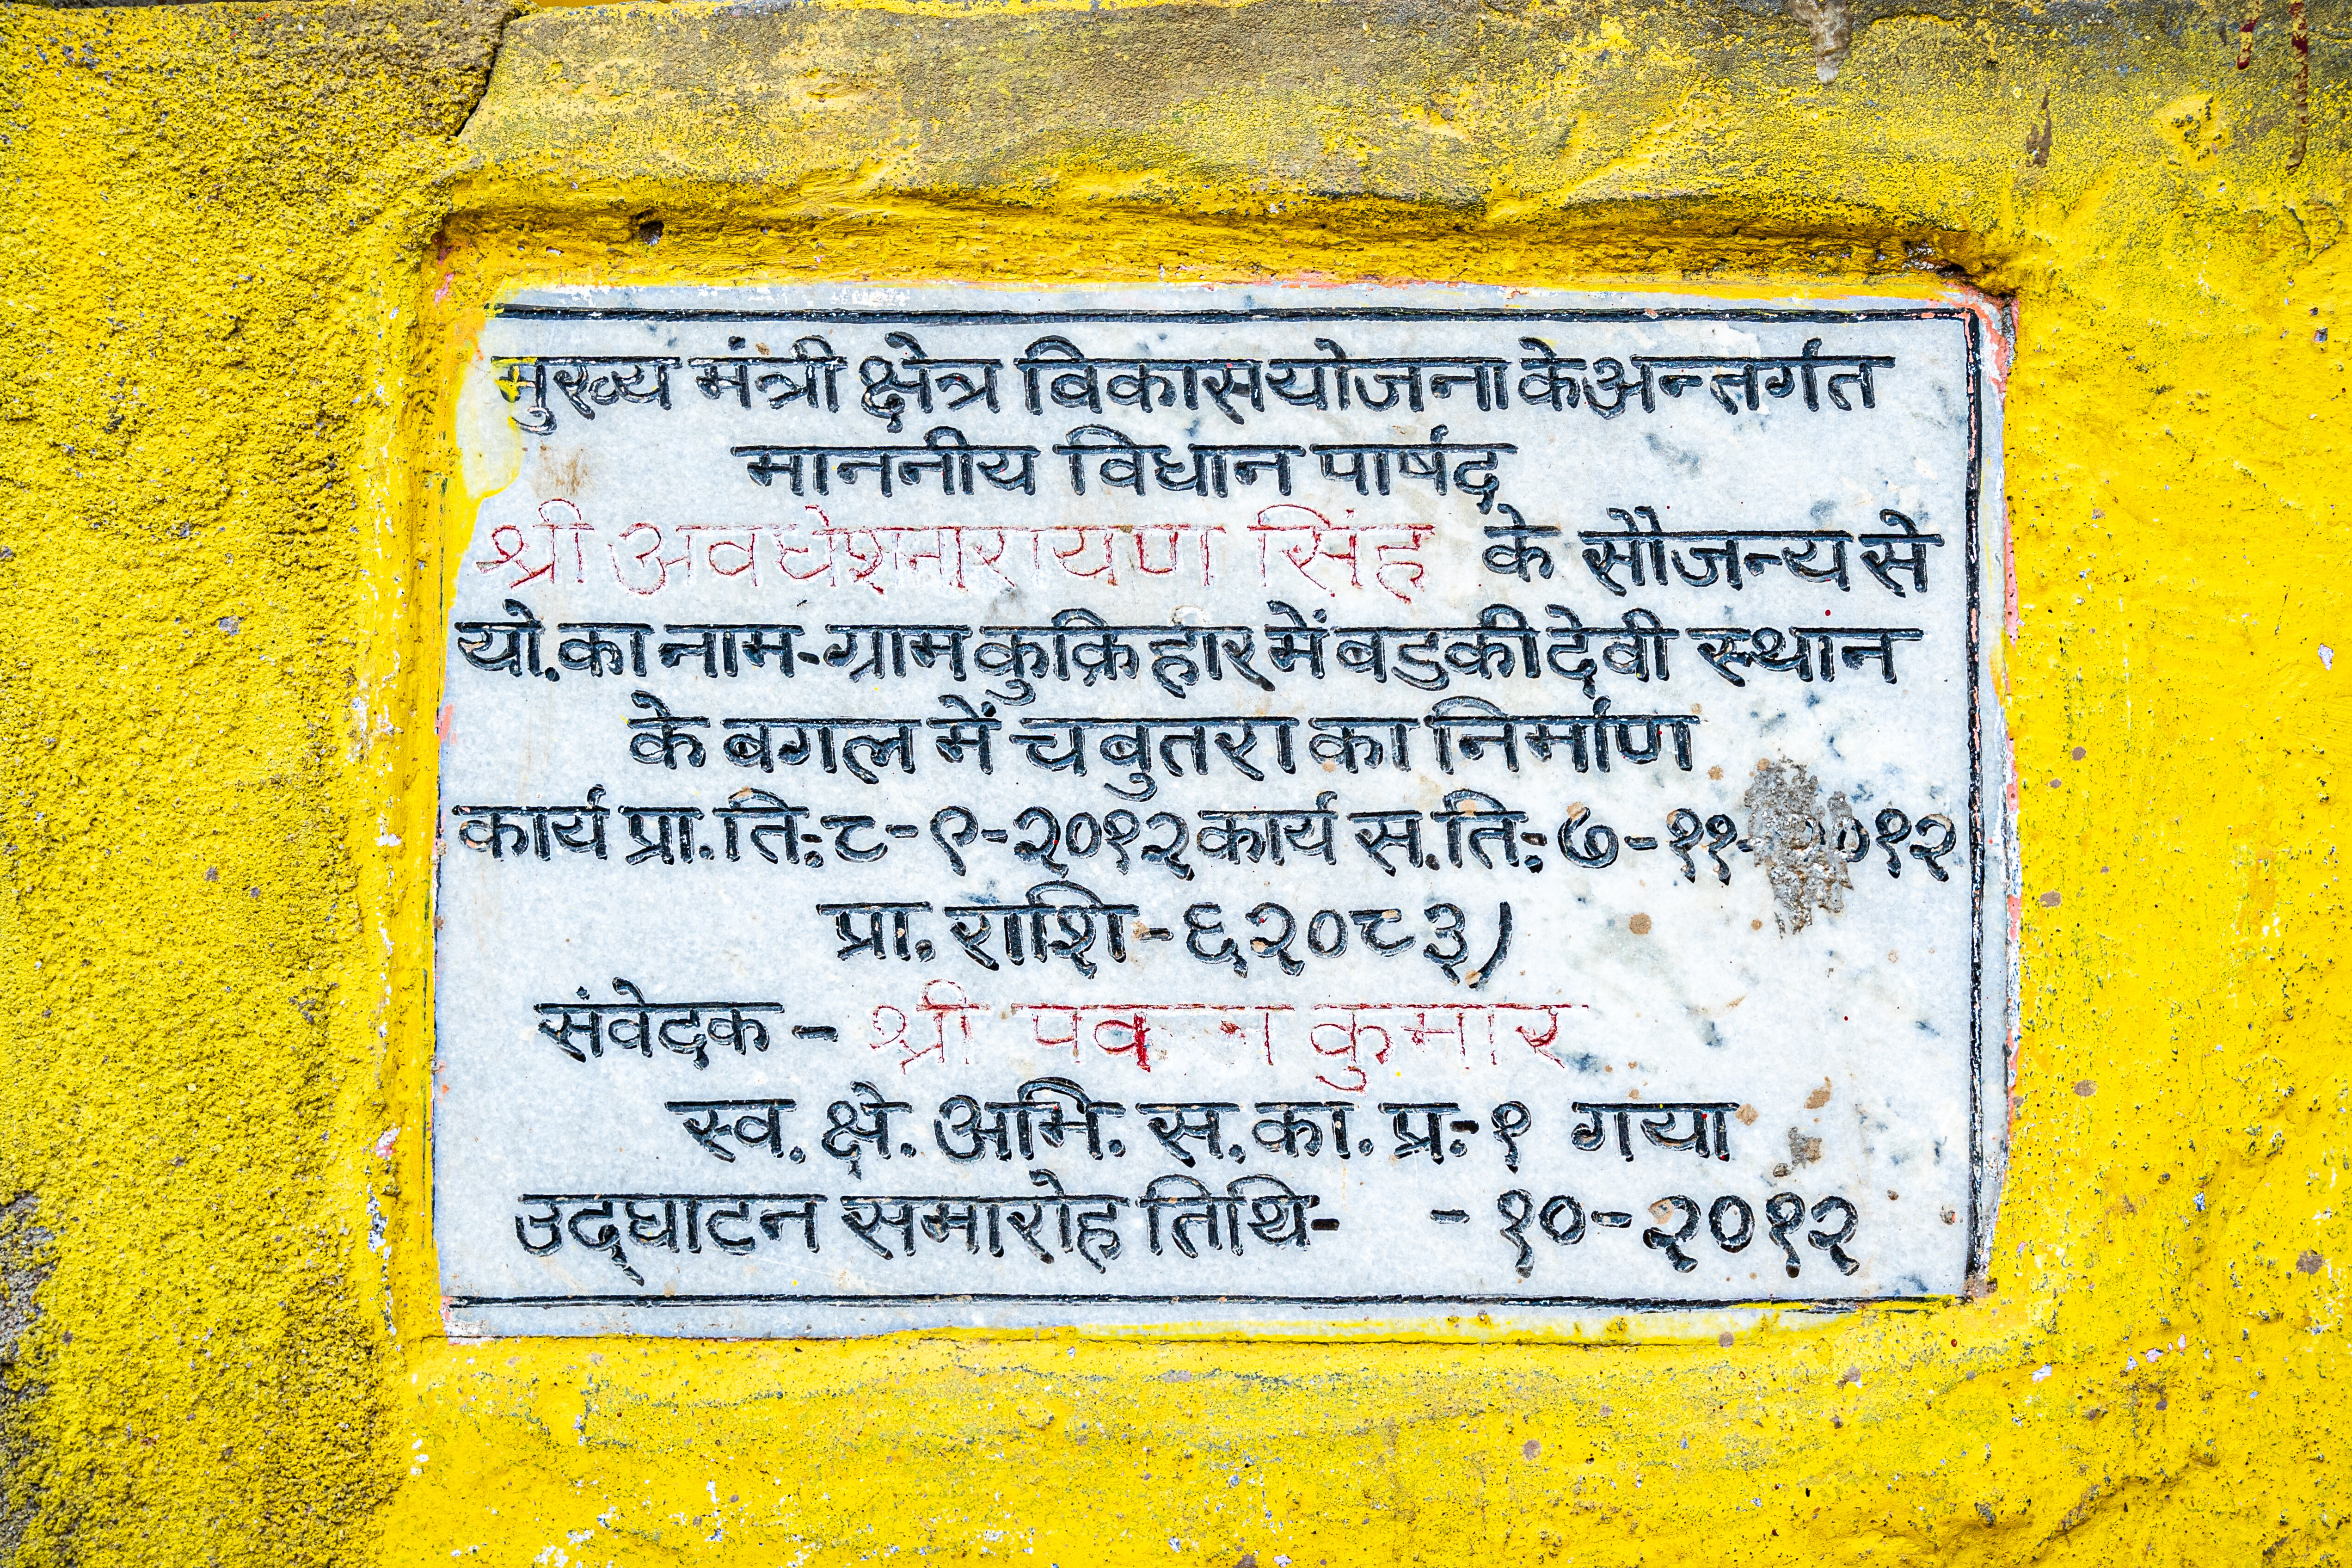 मुख्य मंत्री क्षेत्र विकास योजना के अन्तर्गत
माननीय विधान पार्षद
श्री अवधेश नारायण सिंह के सौजन्य से
यो. का नाम-ग्राम कुक्रिहार में बडुकी देवी स्थान
के बगल में चबुतरा का निर्माण
कार्य प्रा. ति.:८-९-२०१२ कार्य स. ति.: ७-११-२०१२
प्रा. राशि-६२०८३)
संवेदक - श्री पवन कुमार
स्व. क्षे. अभि. स. का. प्र.-१ गया
उद्घाटन समारोह तिथि- -१०-२०१२